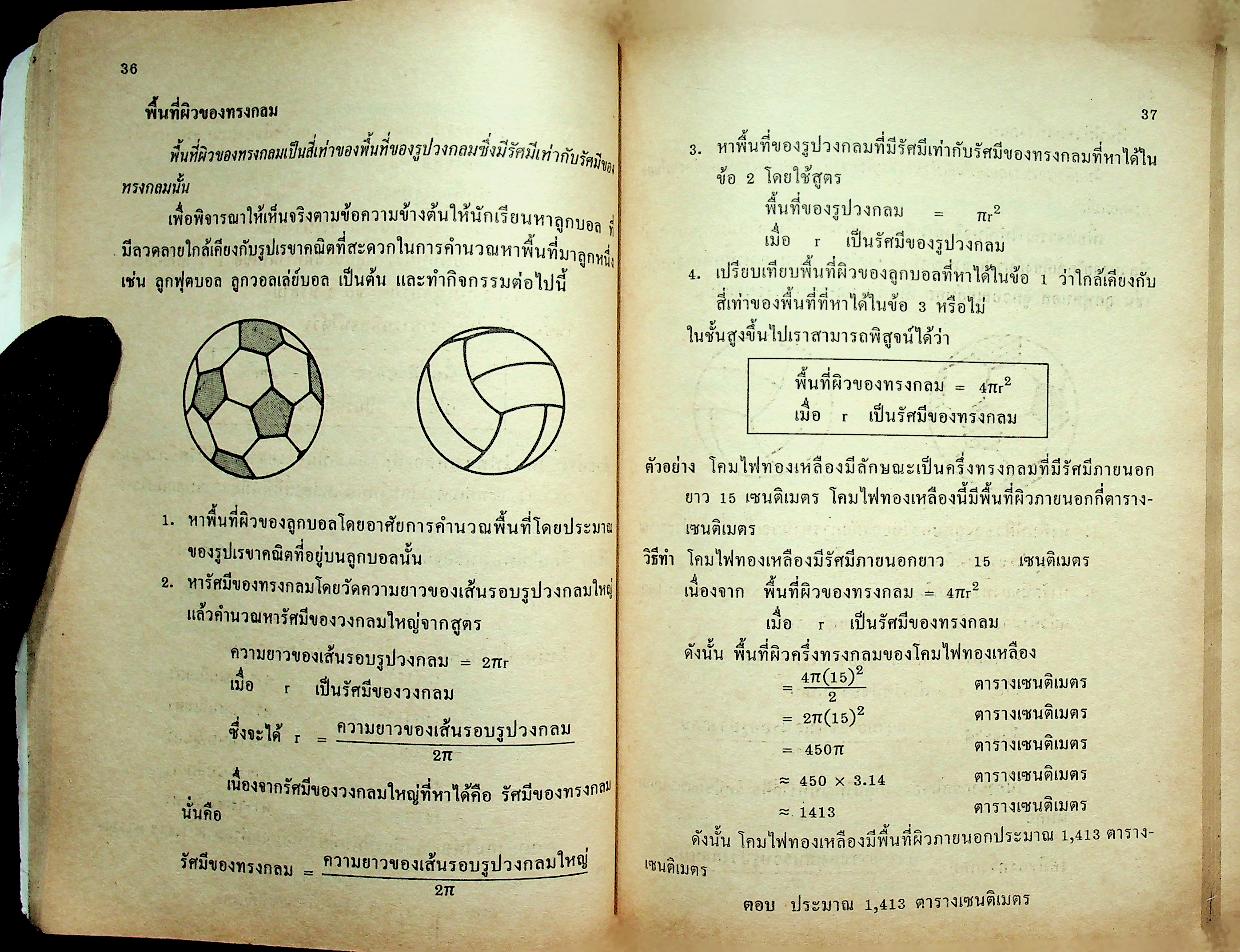 36
พื้นที่ผิวของทรงกลม
พื้นที่ผิวของทรงกลมเป็นสี่เท่าของพื้นที่ของรูปวงกลมซึ่งมีรัศมีเท่ากับรัศมีของ
ทรงกลมนั้น
เพื่อพิจารณาให้เห็นจริงตามข้อความข้างต้นให้นักเรียนหาลูกบอล ที่
มีลวดลายใกล้เคียงกับรูปเรขาคณิตที่สะดวกในการคำนวณหาพื้นที่มาลูกหนึ่ง
เช่น ลูกฟุตบอล ลูกวอลเล่ย์บอล เป็นต้น และทำกิจกรรมต่อไปนี้
1. หาพื้นที่ผิวของลูกบอลโดยอาศัยการคำนวณพื้นที่โดยประมาณ
ของรูปเรขาคณิตที่อยู่บนลูกบอลนั้น
2. หารัศมีของทรงกลมโดยวัดความยาวของเส้นรอบรูปวงกลมใหญ่
แล้วคำนวณหารัศมีของวงกลมใหญ่จากสูตร
ความยาวของเส้นรอบรูปวงกลม = 2πr
เมื่อ r เป็นรัศมีของวงกลม
ซึ่งจะได้ r = ความยาวของเส้นรอบรูปวงกลม
2π
เนื่องจากรัศมีของวงกลมใหญ่ที่หาได้คือ รัศมีของทรงกลม
นั่นคือ
รัศมีของทรงกลม = ความยาวของเส้นรอบรูปวงกลมใหญ่
2π
37
3. หาพื้นที่ของรูปวงกลมที่มีรัศมีเท่ากับรัศมีของทรงกลมที่หาได้ใน
ข้อ 2 โดยใช้สูตร
พื้นที่ของรูปวงกลม = πr²
เมื่อ r เป็นรัศมีของรูปวงกลม
4. เปรียบเทียบพื้นที่ผิวของลูกบอลที่หาได้ในข้อ 1 ว่าใกล้เคียงกับ
สี่เท่าของพื้นที่ที่หาได้ในข้อ 3 หรือไม่
ในชั้นสูงขึ้นไปเราสามารถพิสูจน์ได้ว่า
พื้นที่ผิวของทรงกลม = 4πr²
เมื่อ r เป็นรัศมีของทรงกลม
ตัวอย่าง โคมไฟทองเหลืองมีลักษณะเป็นครึ่งทรงกลมที่มีรัศมีภายนอก
ยาว 15 เซนติเมตร โคมไฟทองเหลืองนี้มีพื้นที่ผิวภายนอกกี่ตาราง-
เซนติเมตร
วิธีทำ โคมไฟทองเหลืองมีรัศมีภายนอกยาว 15 เซนติเมตร
เนื่องจาก พื้นที่ผิวของทรงกลม = 4πr²
เมื่อ r เป็นรัศมีของทรงกลม
ดังนั้น พื้นที่ผิวครึ่งทรงกลมของโคมไฟทองเหลือง
= 4π(15)² ตารางเซนติเมตร
2
= 2π(15)² ตารางเซนติเมตร
= 450π ตารางเซนติเมตร
≈ 450 × 3.14 ตารางเซนติเมตร
≈ 1413 ตารางเซนติเมตร
ดังนั้น โคมไฟทองเหลืองมีพื้นที่ผิวภายนอกประมาณ 1,413 ตาราง-
เซนติเมตร
ตอบ ประมาณ 1,413 ตารางเซนติเมตร